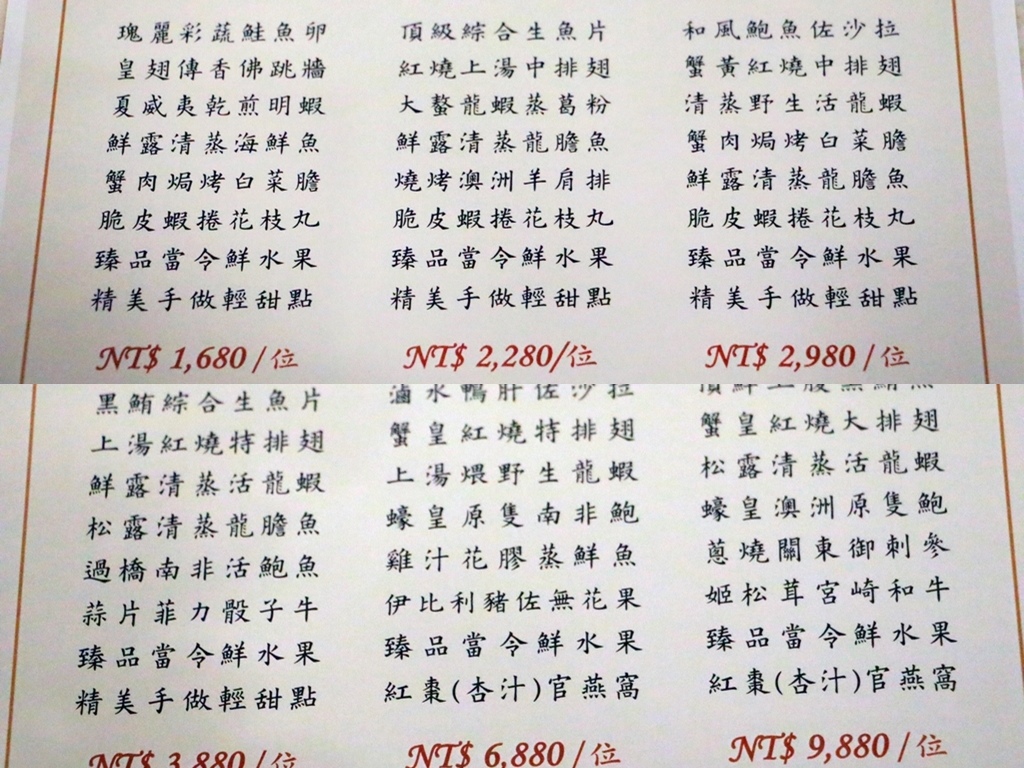 瑰麗彩蔬鮭魚卵
皇翅傳香佛跳牆
夏威夷乾煎明蝦
鮮露清蒸海鮮魚
蟹肉焗烤白菜膽
脆皮蝦捲花枝丸
臻品當令鮮水果
精美手做輕甜點
NT$ 1,680 / 位
頂級綜合生魚片
紅燒上湯中排翅
大螯龍蝦蒸葛粉
鮮露清蒸龍膽魚
燒烤澳洲羊肩排
脆皮蝦捲花枝丸
臻品當令鮮水果
精美手做輕甜點
NT$ 2,280/位
和風鮑魚佐沙拉
蟹黃紅燒中排翅
清蒸野生活龍蝦
蟹肉焗烤白菜膽
鮮露清蒸龍膽魚
脆皮蝦捲花枝丸
臻品當令鮮水果
精美手做輕甜點
NT$ 2,980 / 位
黑鮪綜合生魚片
上湯紅燒特排翅
鮮露清蒸活龍蝦
松露清蒸龍膽魚
過橋南非活鮑魚
蒜片菲力骰子牛
臻品當令鮮水果
精美手做輕甜點
NT$ 3,880 / 位
滷水鴨肝佐沙拉
蟹皇紅燒特排翅
上湯煨野生龍蝦
蠔皇原隻南非鮑
雞汁花膠蒸鮮魚
伊比利豬佐無花果
臻品當令鮮水果
紅棗(杏汁)官燕窩
NT$ 6,880 / 位
頂鮮上腹黑鮪魚
蟹皇紅燒大排翅
松露清蒸活龍蝦
蠔皇澳洲原隻鮑
蔥燒關東御刺參
姬松茸宮崎和牛
臻品當令鮮水果
紅棗(杏汁)官燕窩
NT$ 9,880 / 位